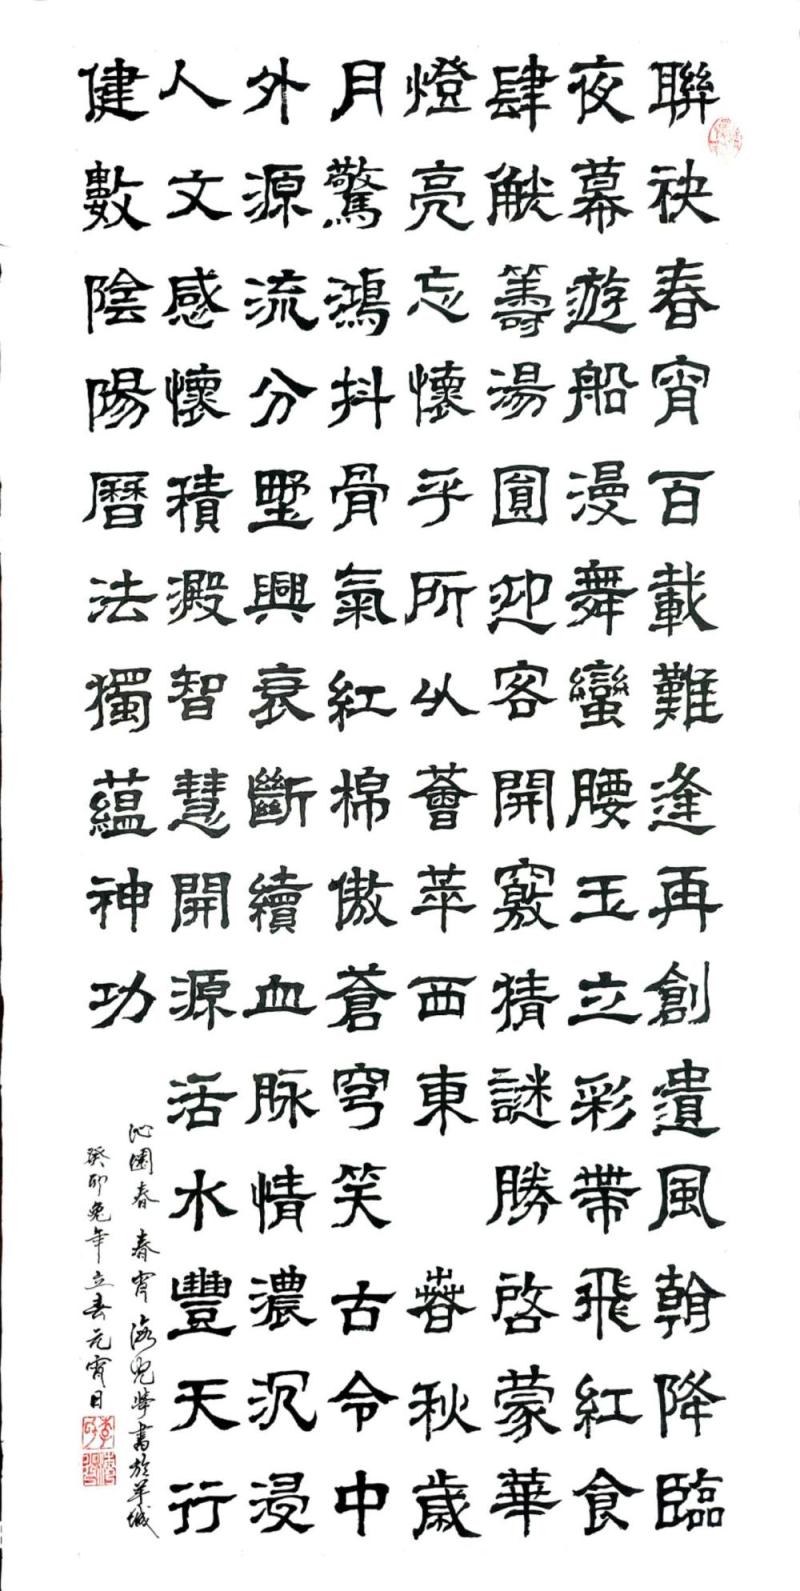 聯袂春宵百載難逢再創遺風朝降臨
夜幕遊船漫舞蠻腰玉立彩帶飛紅食
肆觥籌湯圓迎客開竅猜謎勝啓蒙華
燈亮忘懷乎所以薈萃西東 春秋歲
月驚鴻抖骨氣紅棉傲蒼穹笑古今中
外源流分墅興衰斷續血脉情濃沉浸
人文感懷積澱智慧開源活水豐天行
健數陰陽曆法獨蘊神功
沁園春 春宵 書於羊城
癸卯兔年立春元宵日